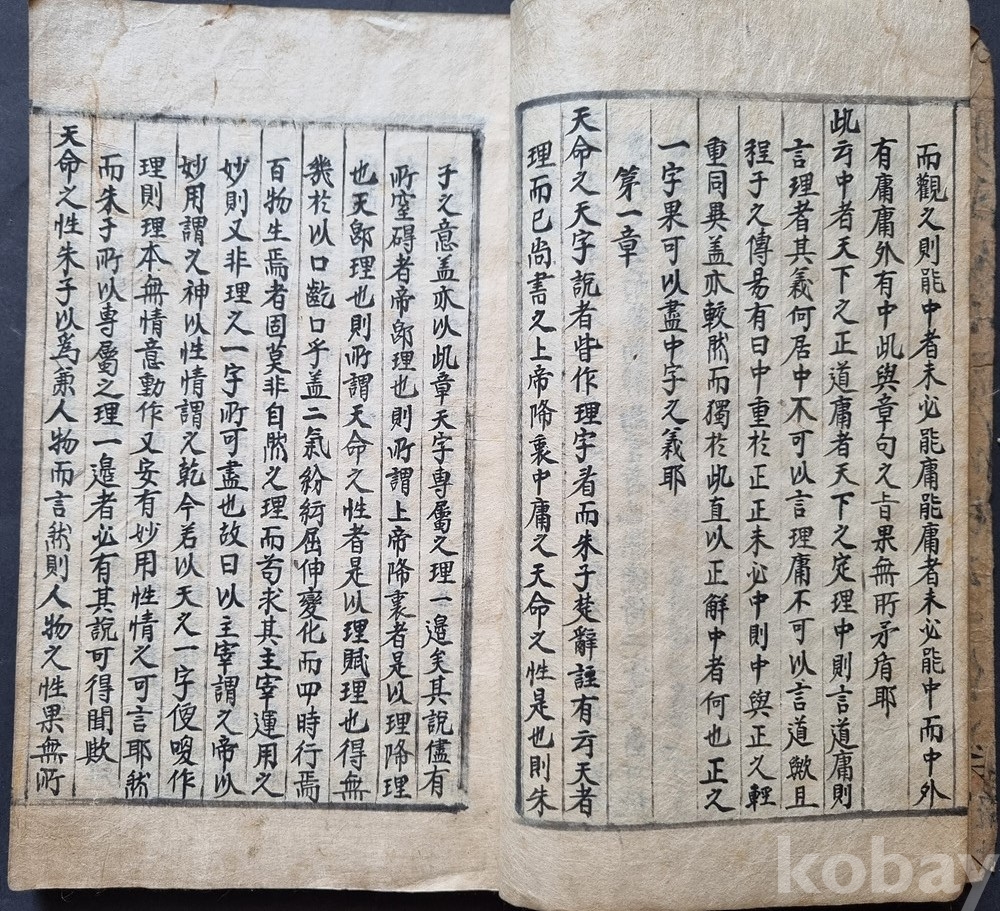 而觀之則能中者未必能庸能庸者未必能中而中外
有庸庸外有中此與章句之旨果無所矛盾耶
此云中者天下之正道庸者天下之定理中則言道庸則
言理者其義何居中不可以言理庸不可以言道歟且
程子之傳易有曰中重於正正未必中則中與正之輕
重同異盖亦較然而獨於此直以正解中者何也正之
一字果可以盡中字之義耶
第一章
天命之天字說者皆作理字看而朱子楚辭註有云天者
理而已尚書之上帝降衷中庸之天命之性是也則朱
子之意盖亦以此章天字專屬之理一邉矣其說儘有
所窒碍者帝卽理也則所謂上帝降衷者是以理降理
也天卽理也則所謂天命之性者是以理賦理也得無
幾於以口齕口乎盖二氣紛紜屈伸變化而四時行焉
百物生焉者固莫非自然之理而苟求其主宰運用之
妙則又非理之一字所可盡也故曰以主宰謂之帝以
妙用謂之神以性情謂之乾今若以天之一字便喚作
理則理本無情意動作又安有妙用性情之可言耶然
而朱子所以専屬之理一邉者必有其說可得聞歟
天命之性朱子以爲兼人物而言然則人物之性果無所
kobay